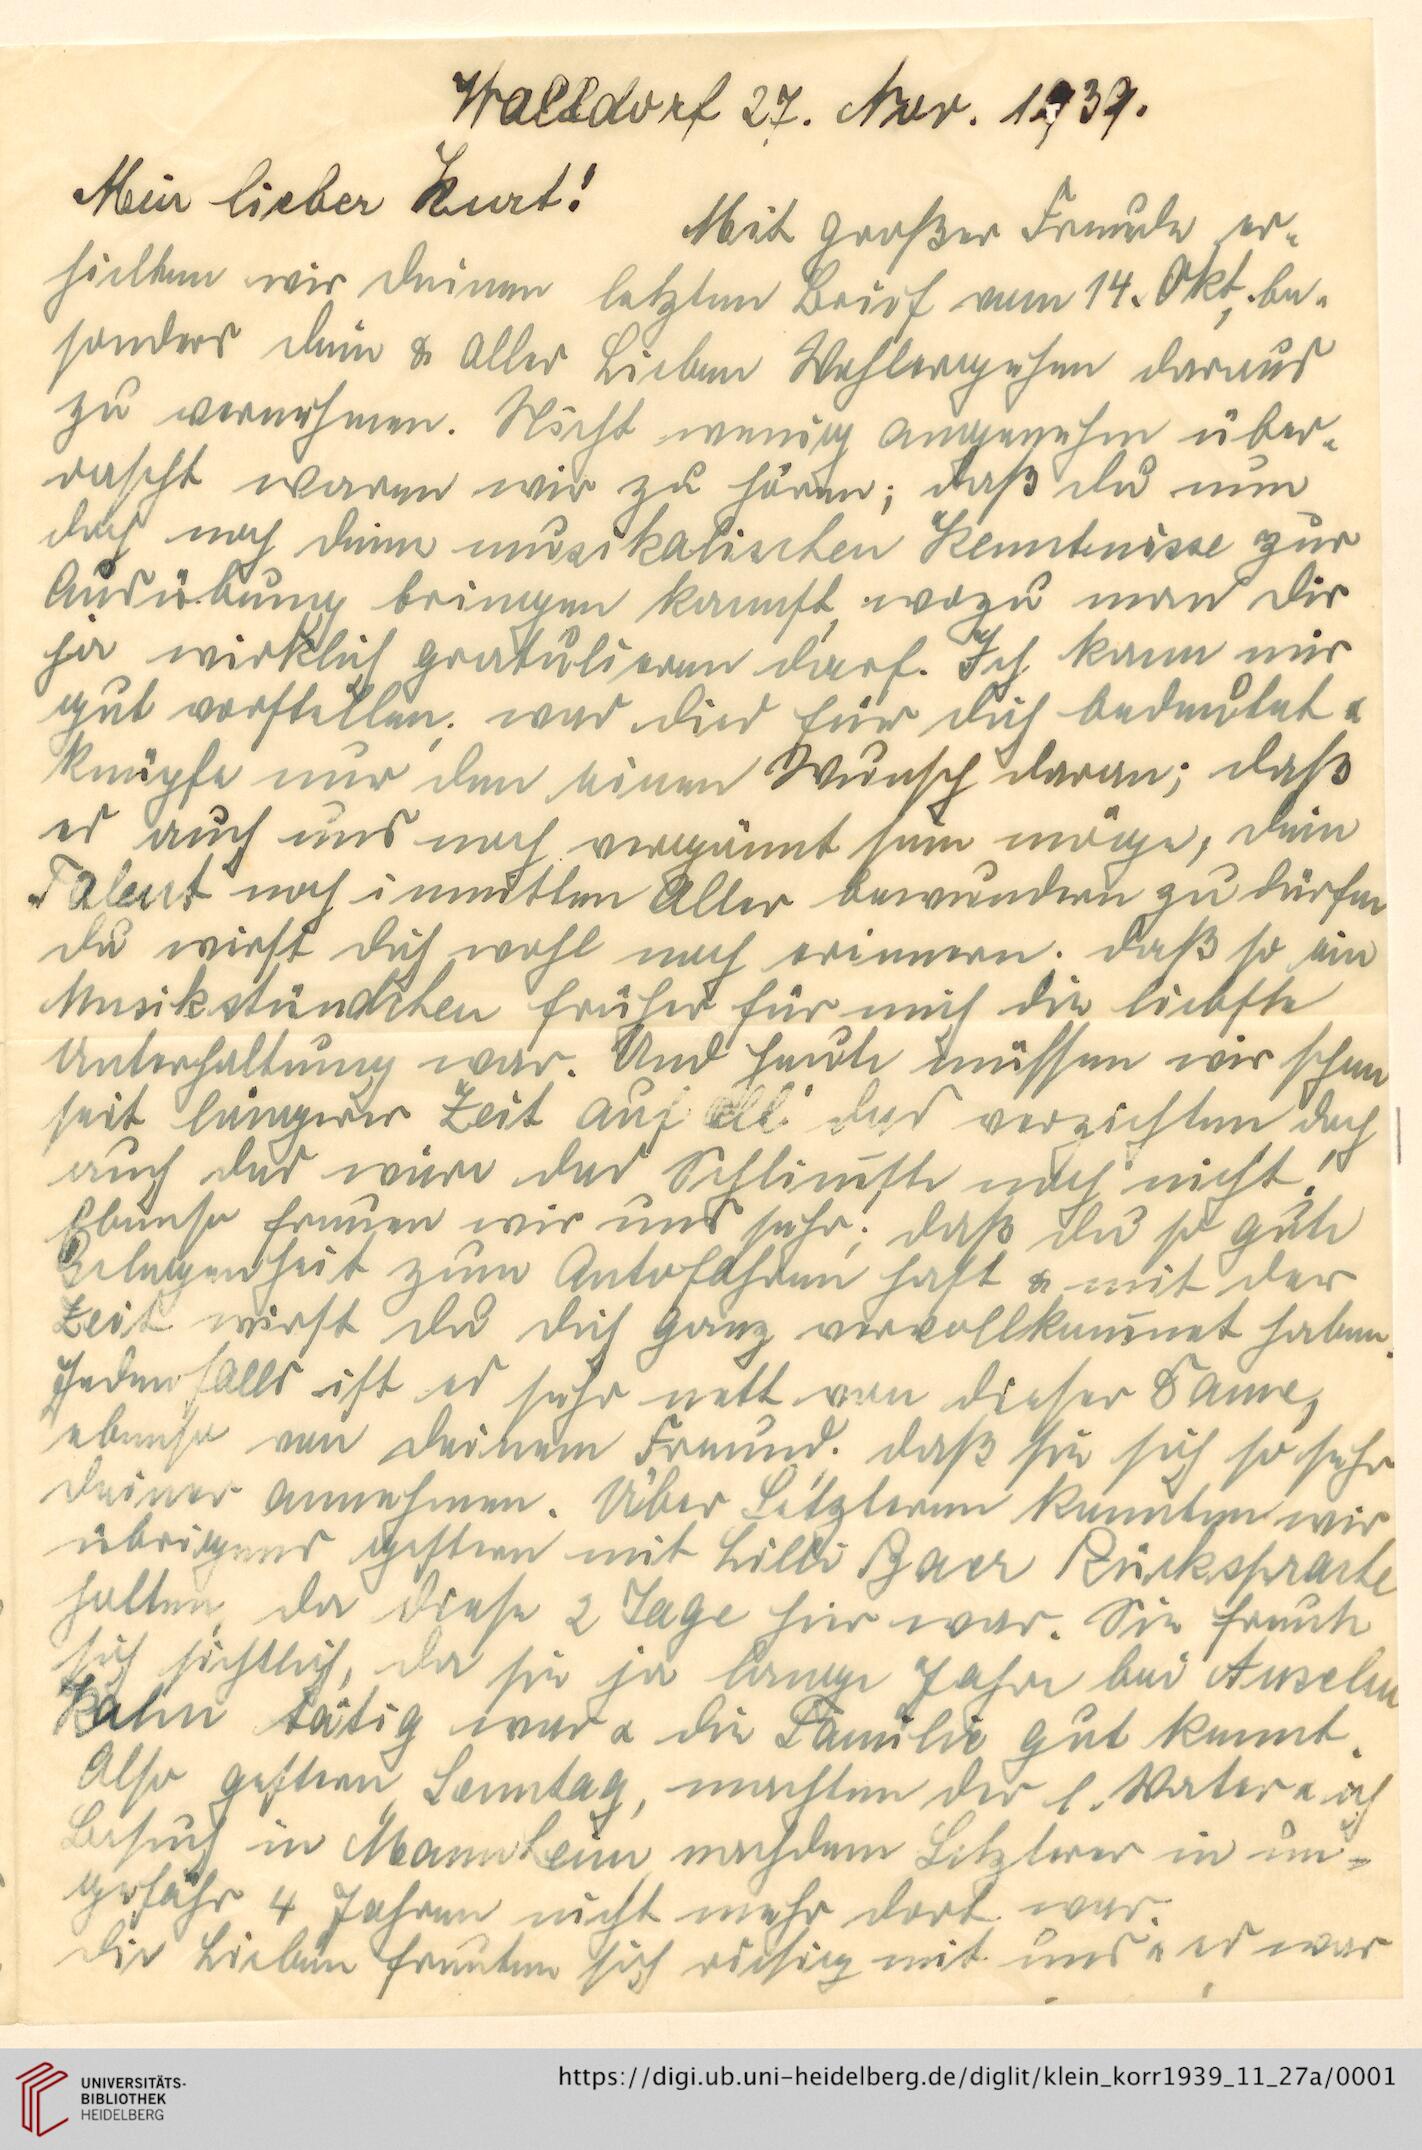 Walldorf 27. Nov. 1939.
Mein lieber Kurt!
Mit großer Freude er-
hielten wir deinen letzten Brief vom 14. Okt, be-
sonders dein & aller Lieben Wohlergehen daraus
zu vernehmen. Nicht wenig angenehm über-
rascht waren wir zu hören; daß du nun
doch noch deine musikalischen Kenntnisse zur
Ausübung bringen kannst, wozu man dir
ja wirklich gratulieren darf. Ich kann mir
gut vorstellen, was dies für dich bedeutet &
knüpfe nur den einen Wunsch daran; daß
es auch uns noch vergönnt sein möge, dein
Talent noch inmitten Aller bewundern zu dürfen
du wirst dich wohl noch erinnern. daß so ein
Musikstündchen früher für mich die liebste
Unterhaltung war. Und heute müssen wir schon
seit längerer Zeit auf all das verzichten doch
auch das wäre das Schlimste noch nicht!
Ebenso freuen wir uns sehr; daß du so gute
Gelegenheit zum Autofahren hast & mit der
Zeit wirst du dich ganz vervollkommnet haben.
Jedenfalls ist es sehr nett von dieser Dame,
ebenso von deinem Freund. daß sie sich so sehr
deiner annehmen. Über Letzteren konnten wir
übrigens gestern mit Lilli Baer Rücksprache
halten, da diese 2 Tage hier war. Sie freute
sich sichtlich, da sie ja lange Jahre bei Anselm
Kahn tätig war & die Familie gut kennt.
Also gestern, Sonntag, machten der l. Vater & ich
Besuch in Mannheim nachdem Letzterer in un-
gefähr 4 Jahren nicht mehr dort war.
die Lieben freuten sich riesig mit uns & es war
UNIVERSITÄTS-
BIBLIOTHEK
HEIDELBERG
https://digi.ub.uni-heidelberg.de/diglit/klein_korr1939_11_27a/0001